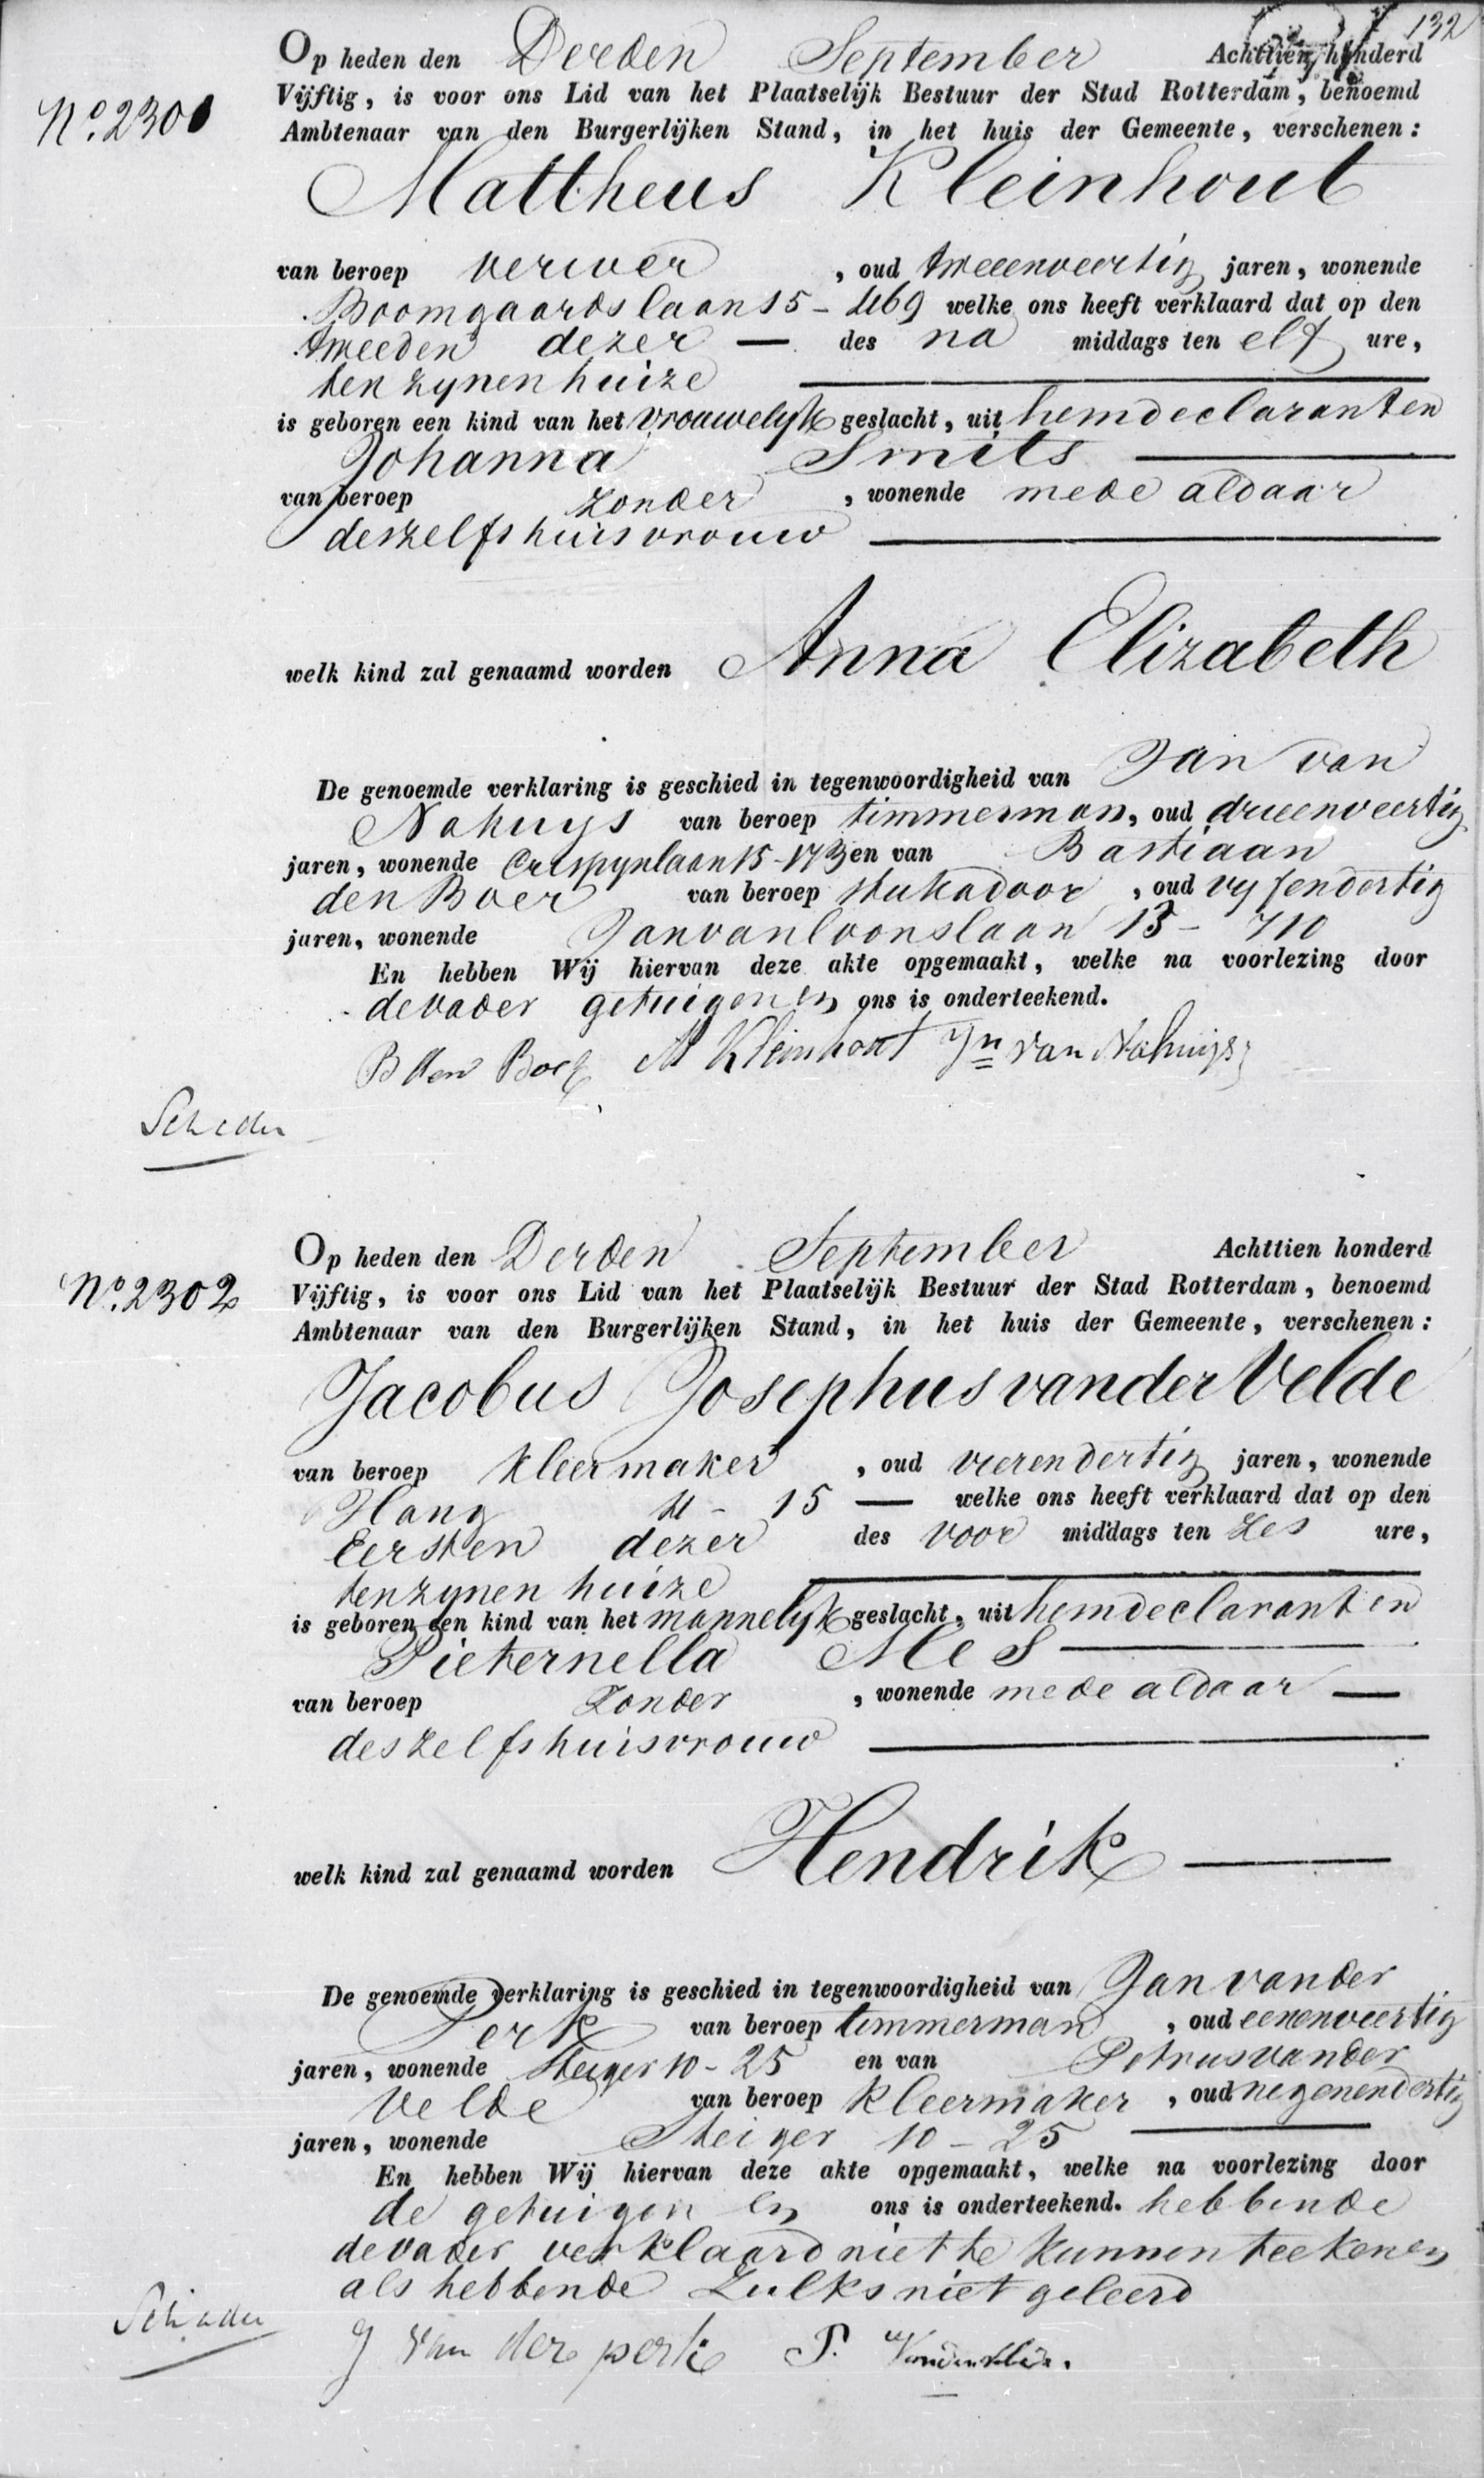 132
Op heden den Derden September Achttien honderd
No. 2301
Vijftig, is voor ons Lid van het Plaatselijk Bestuur der Stad Rotterdam, benoemd
Ambtenaar van den Burgerlijken Stand, in het huis der Gemeente, verschenen:
Mattheus Kleinhout
van beroep verwer, oud tweeenveertig jaren, wonende
Boomgaardslaan 15 - 469 welke ons heeft verklaard dat op den
tweeden dezer — des na middags ten elf ure,
ten zynen huize
is geboren een kind van het vrouwelyk geslacht, uit hem declarant en
Johanna Smits
van beroep zonder, wonende mede aldaar
deszelfs huisvrouw
welk kind zal genaamd worden Anna Elizabeth
De genoemde verklaring is geschied in tegenwoordigheid van Jan van
Nahuys van beroep timmerman, oud drieenveertig
jaren, wonende Crispynlaan 15-173 en van Bastiaan
den Boer van beroep stukadoor, oud vyfendertig
jaren, wonende Jan van Loonslaan 15 - 710
En hebben Wij hiervan deze akte opgemaakt, welke na voorlezing door
de vader getuigen en ons is onderteekend.
B den Boer M Kleinhout Jn van Nahuijs
Op heden den Derden September Achttien honderd
No. 2302
Vijftig, is voor ons Lid van het Plaatselijk Bestuur der Stad Rotterdam, benoemd
Ambtenaar van den Burgerlijken Stand, in het huis der Gemeente, verschenen:
Jacobus Josephus van der Velde
van beroep kleermaker, oud vierendertig jaren, wonende
Hang 4 - 15 — welke ons heeft verklaard dat op den
Eersten dezer des voor middags ten zes ure,
ten zynen huize
is geboren een kind van het mannelyk geslacht, uit hem declarant en
Pieternella Mes
van beroep zonder, wonende mede aldaar —
deszelfs huisvrouw
welk kind zal genaamd worden Hendrik
De genoemde verklaring is geschied in tegenwoordigheid van Jan van der
Perk van beroep timmerman, oud eenenveertig
jaren, wonende Steiger 10 - 25 en van Petrus van der
Velde van beroep kleermaker, oud negenendertig
jaren, wonende Steiger 10 - 25
En hebben Wij hiervan deze akte opgemaakt, welke na voorlezing door
de getuigen en ons is onderteekend. hebbende
de vader verklaard niet te kunnen teekenen
als hebbende zulks niet geleerd
J van der perk P.